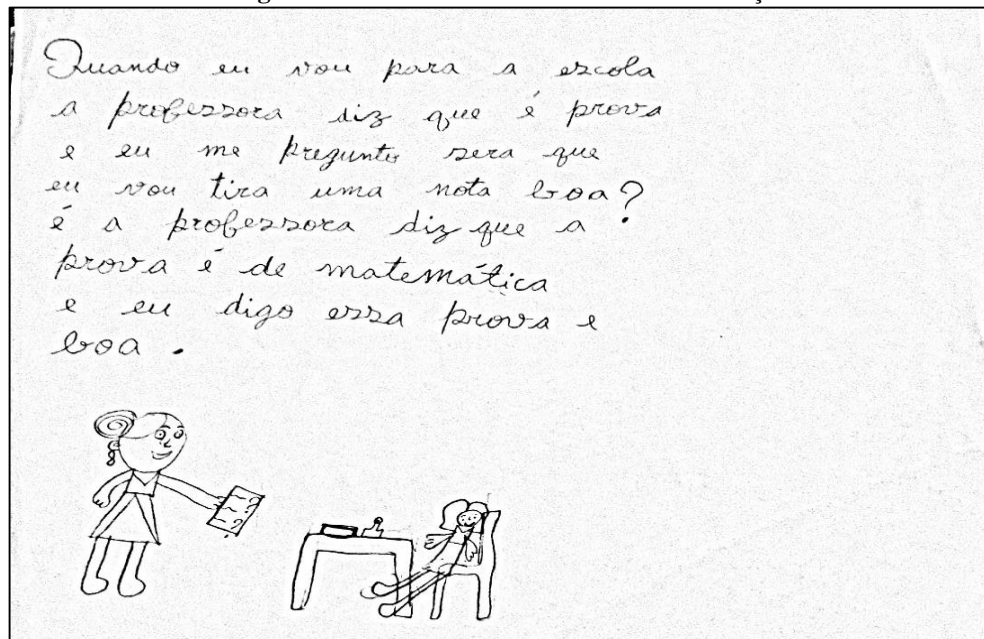 Quando eu vou para a escola
a professora diz que é prova
e eu me pregunto sera que
eu vou tira uma nota boa?
é a professora diz que a
prova é de matemática
e eu digo essa prova e
boa.